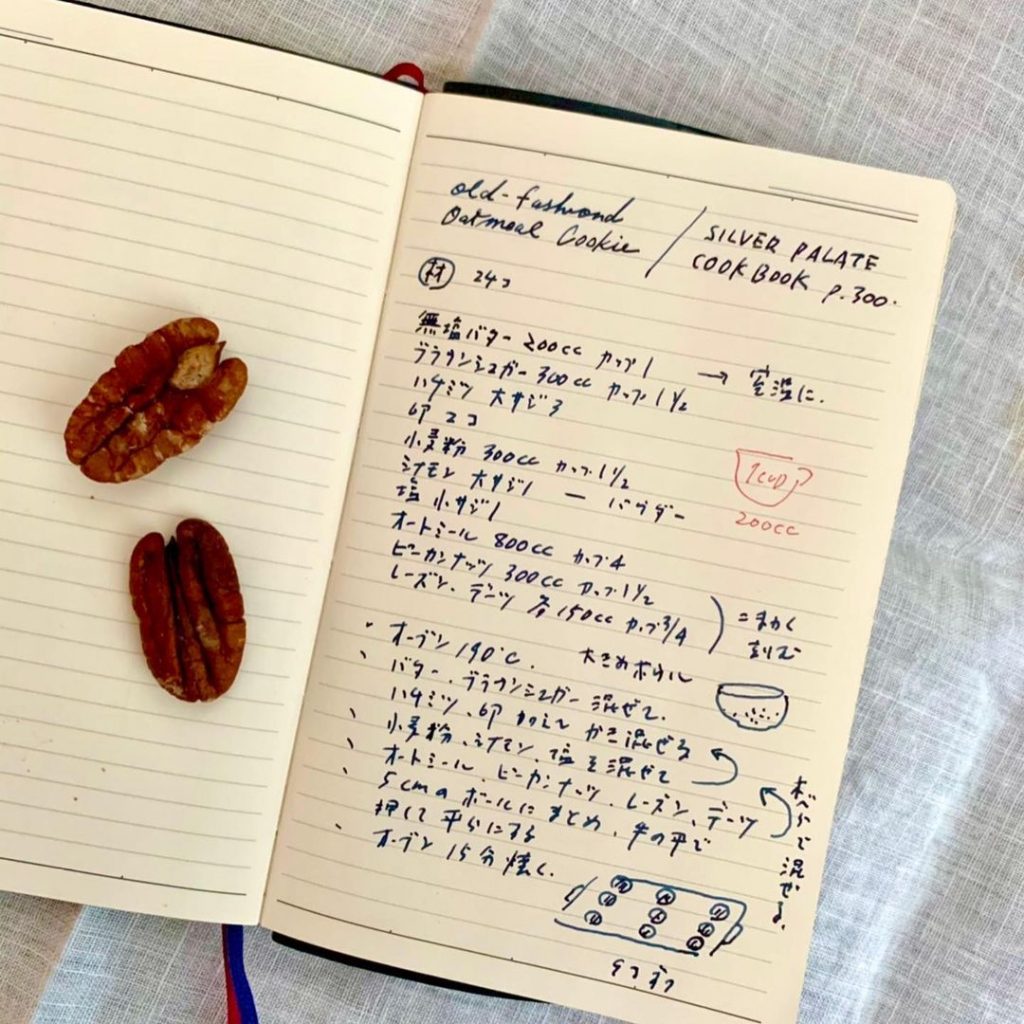 old-fashiond
Oatmeal Cookie
/ SILVER PALATE
COOKBOOK p.300.
材 24コ
無塩バター 200cc カップ1 → 室温に.
ブラウンシュガー 300cc カップ1½
ハチミツ 大サジ3
卵 2コ
小麦粉 300cc カップ1½
シナモン 大サジ1 — パウダー
塩 小サジ1
1CUP
200cc
オートミール 800cc カップ4
ピーカンナッツ 300cc カップ1½
レーズン、デーツ 各150cc カップ3/4
こまかく
刻む
・オーブン 190℃.
大きめボウル
、バター、ブラウンシュガー 混ぜて.
ハチミツ、卵 加えて かき混ぜる
、小麦粉、シナモン、塩を混ぜて
、オートミール、ピーカンナッツ、レーズン、デーツ
木べらで混ぜる.
、5cmのボールにまとめ、手の平で
押して平らにする
、オーブン 15分焼く.
9コずつ